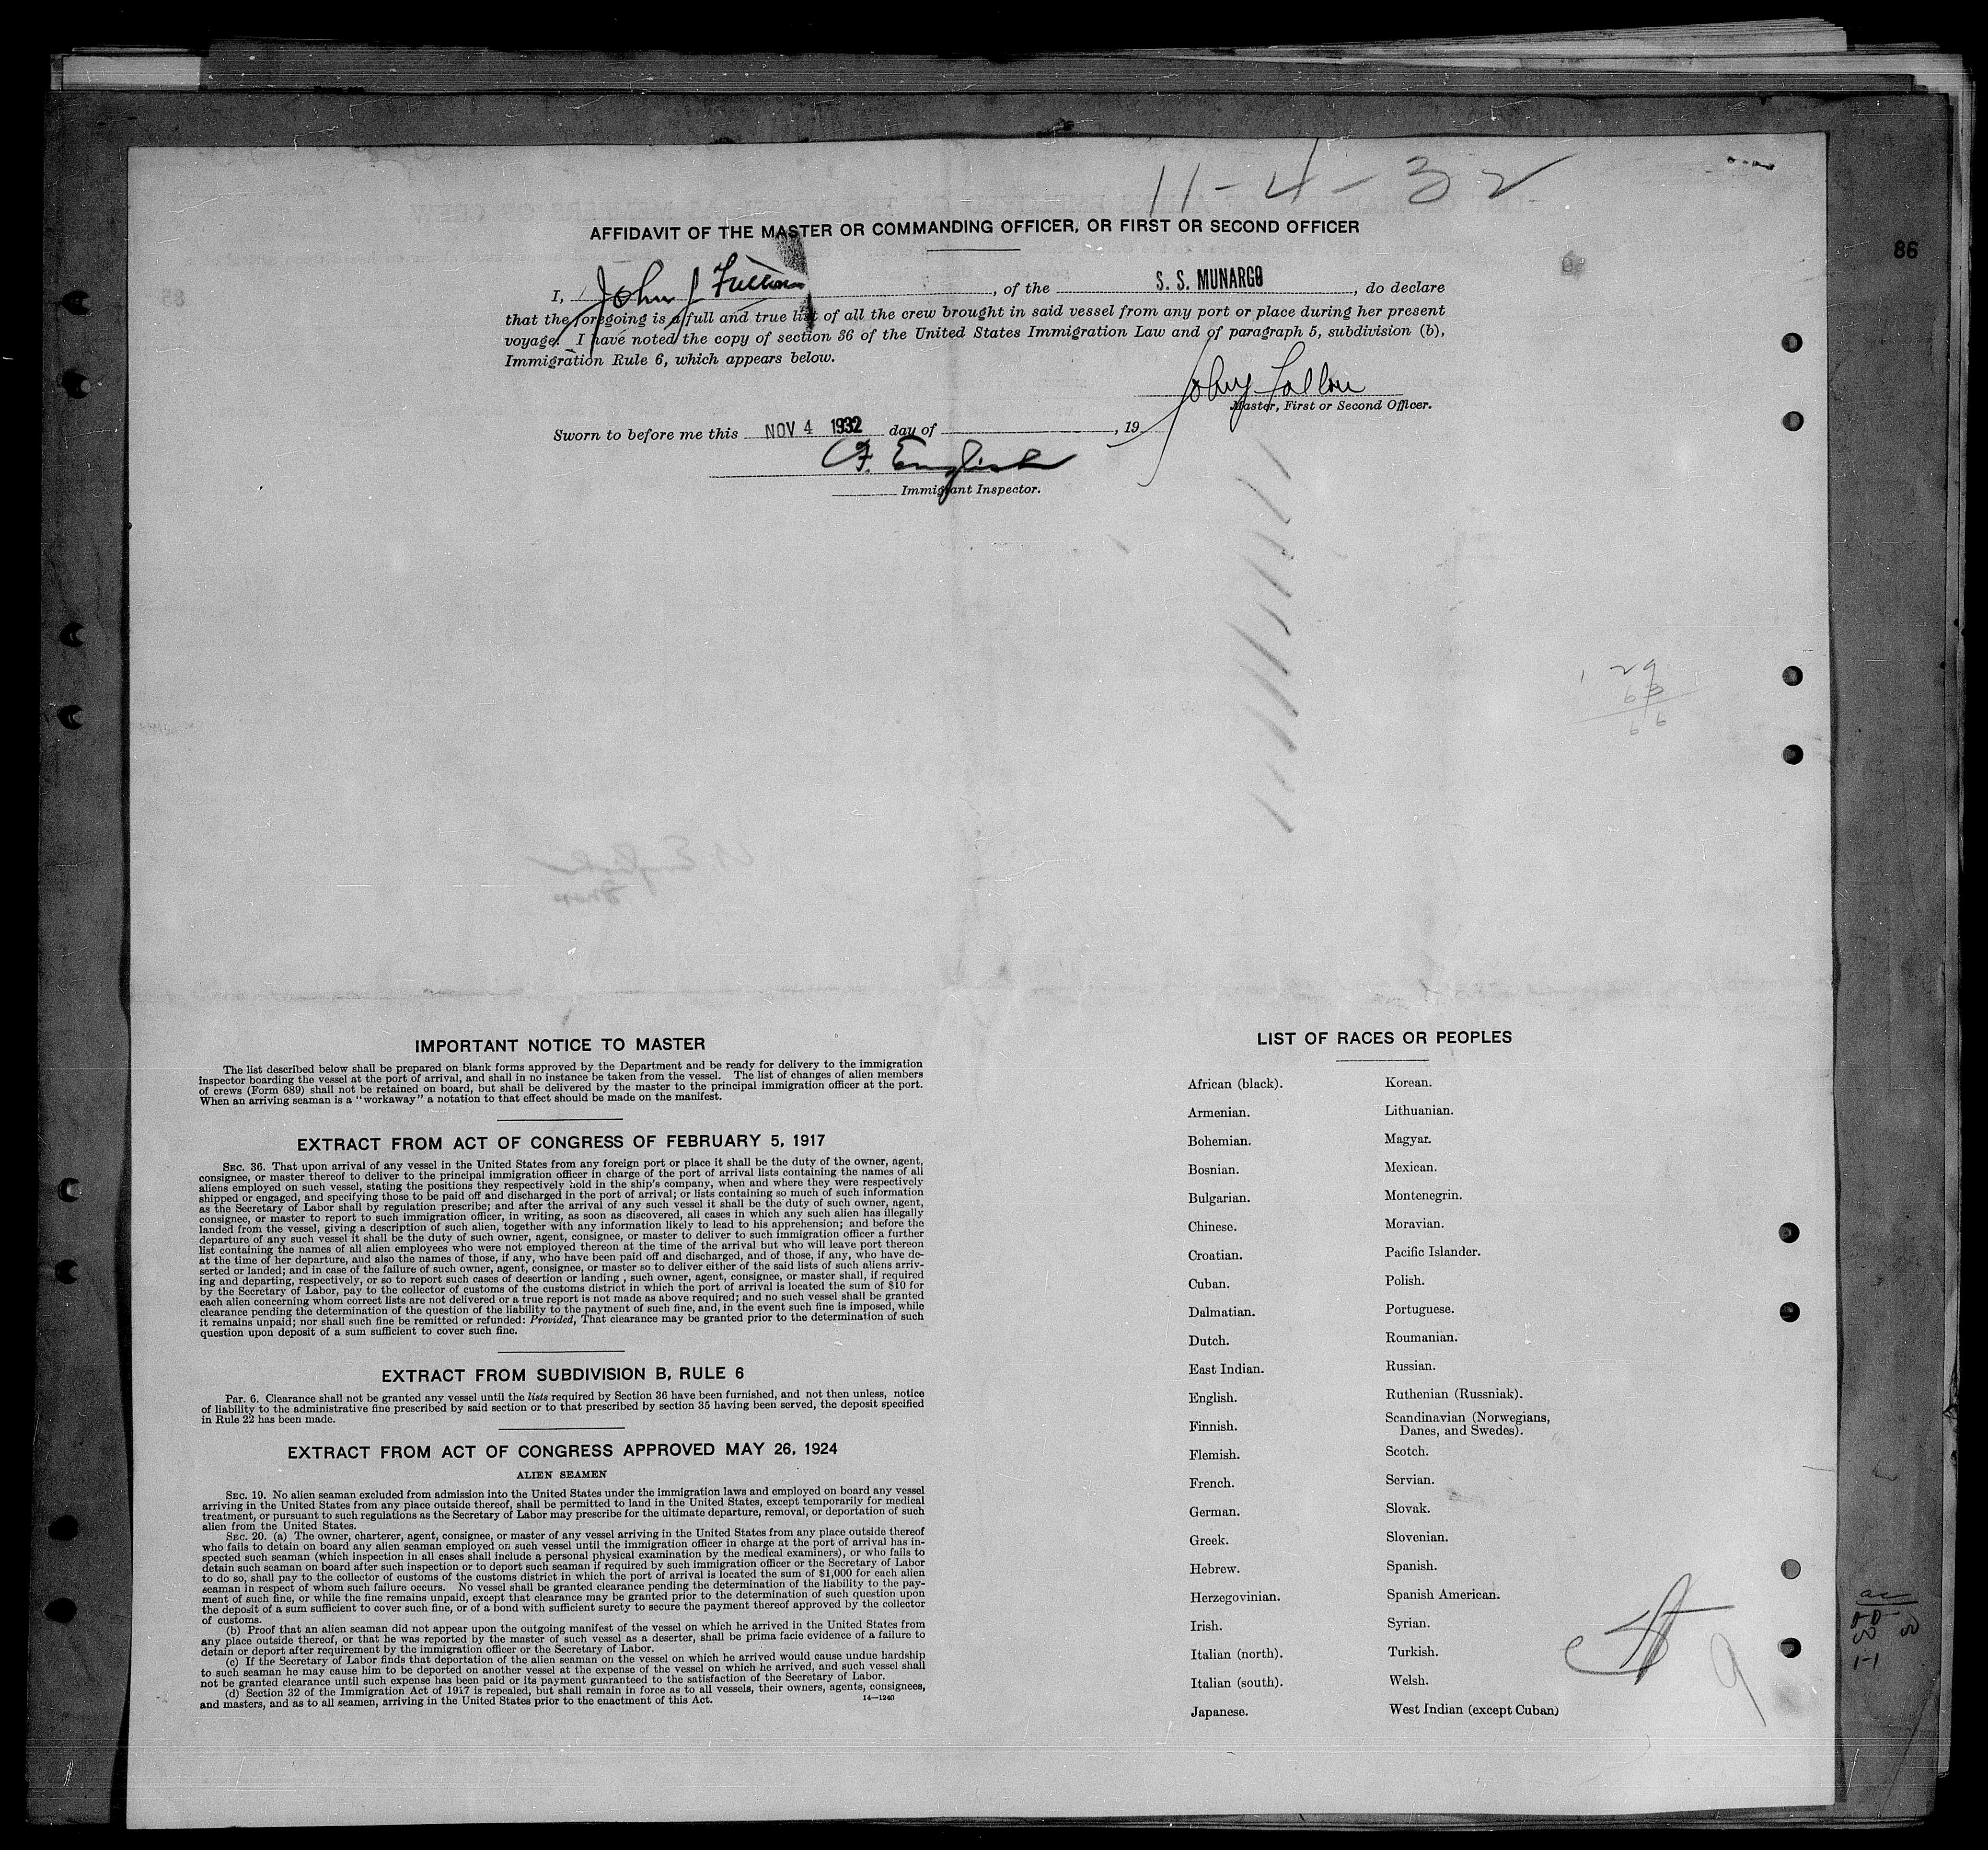 11-4-32
86
AFFIDAVIT OF THE MASTER OR COMMANDING OFFICER, OR FIRST OR SECOND OFFICER
I, John J Fallon, of the S. S. MUNARGO, do declare
that the foregoing is a full and true list of all the crew brought in said vessel from any port or place during her present
voyage. I have noted the copy of section 36 of the United States Immigration Law and of paragraph 5, subdivision (b),
Immigration Rule 6, which appears below.
John J Fallon
Master, First or Second Officer.
Sworn to before me this NOV 4 1932 day of , 19
F. English
Immigrant Inspector.
29
66
IMPORTANT NOTICE TO MASTER
The list described below shall be prepared on blank forms approved by the Department and be ready for delivery to the immigration
inspector boarding the vessel at the port of arrival, and shall in no instance be taken from the vessel. The list of changes of alien members
of crews (Form 689) shall not be retained on board, but shall be delivered by the master to the principal immigration officer at the port.
When an arriving seaman is a "workaway" a notation to that effect should be made on the manifest.
EXTRACT FROM ACT OF CONGRESS OF FEBRUARY 5, 1917
SEC. 36. That upon arrival of any vessel in the United States from any foreign port or place it shall be the duty of the owner, agent,
consignee, or master thereof to deliver to the principal immigration officer in charge of the port of arrival lists containing the names of all
aliens employed on such vessel, stating the positions they respectively hold in the ship's company, when and where they were respectively
shipped or engaged, and specifying those to be paid off and discharged in the port of arrival; or lists containing so much of such information
as the Secretary of Labor shall by regulation prescribe; and after the arrival of any such vessel it shall be the duty of such owner, agent,
consignee, or master to report to such immigration officer, in writing, as soon as discovered, all cases in which any such alien has illegally
landed from the vessel, giving a description of such alien, together with any information likely to lead to his apprehension; and before the
departure of any such vessel it shall be the duty of such owner, agent, consignee, or master to deliver to such immigration officer a further
list containing the names of all alien employees who were not employed thereon at the time of the arrival but who will leave port thereon
at the time of her departure, and also the names of those, if any, who have been paid off and discharged, and of those, if any, who have de-
serted or landed; and in case of the failure of such owner, agent, consignee, or master so to deliver either of the said lists of such aliens arriv-
ing and departing, respectively, or so to report such cases of desertion or landing , such owner, agent, consignee, or master shall, if required
by the Secretary of Labor, pay to the collector of customs of the customs district in which the port of arrival is located the sum of $10 for
each alien concerning whom correct lists are not delivered or a true report is not made as above required; and no such vessel shall be granted
clearance pending the determination of the question of the liability to the payment of such fine, and, in the event such fine is imposed, while
it remains unpaid; nor shall such fine be remitted or refunded: Provided, That clearance may be granted prior to the determination of such
question upon deposit of a sum sufficient to cover such fine.
EXTRACT FROM SUBDIVISION B, RULE 6
Par. 6. Clearance shall not be granted any vessel until the lists required by Section 36 have been furnished, and not then unless, notice
of liability to the administrative fine prescribed by said section or to that prescribed by section 35 having been served, the deposit specified
in Rule 22 has been made.
EXTRACT FROM ACT OF CONGRESS APPROVED MAY 26, 1924
ALIEN SEAMEN
SEC. 19. No alien seaman excluded from admission into the United States under the immigration laws and employed on board any vessel
arriving in the United States from any place outside thereof, shall be permitted to land in the United States, except temporarily for medical
treatment, or pursuant to such regulations as the Secretary of Labor may prescribe for the ultimate departure, removal, or deportation of such
alien from the United States.
SEC. 20. (a) The owner, charterer, agent, consignee, or master of any vessel arriving in the United States from any place outside thereof
who fails to detain on board any alien seaman employed on such vessel until the immigration officer in charge at the port of arrival has in-
spected such seaman (which inspection in all cases shall include a personal physical examination by the medical examiners), or who fails to
detain such seaman on board after such inspection or to deport such seaman if required by such immigration officer or the Secretary of Labor
to do so, shall pay to the collector of customs of the customs district in which the port of arrival is located the sum of $1,000 for each alien
seaman in respect of whom such failure occurs. No vessel shall be granted clearance pending the determination of the liability to the pay-
ment of such fine, or while the fine remains unpaid, except that clearance may be granted prior to the determination of such question upon
the deposit of a sum sufficient to cover such fine, or of a bond with sufficient surety to secure the payment thereof approved by the collector
of customs.
(b) Proof that an alien seaman did not appear upon the outgoing manifest of the vessel on which he arrived in the United States from
any place outside thereof, or that he was reported by the master of such vessel as a deserter, shall be prima facie evidence of a failure to
detain or deport after requirement by the immigration officer or the Secretary of Labor.
(c) If the Secretary of Labor finds that deportation of the alien seaman on the vessel on which he arrived would cause undue hardship
to such seaman he may cause him to be deported on another vessel at the expense of the vessel on which he arrived, and such vessel shall
not be granted clearance until such expense has been paid or its payment guaranteed to the satisfaction of the Secretary of Labor.
(d) Section 32 of the Immigration Act of 1917 is repealed, but shall remain in force as to all vessels, their owners, agents, consignees,
and masters, and as to all seamen, arriving in the United States prior to the enactment of this Act. 14—1240
LIST OF RACES OR PEOPLES
African (black). Korean.
Armenian. Lithuanian.
Bohemian. Magyar.
Bosnian. Mexican.
Bulgarian. Montenegrin.
Chinese. Moravian.
Croatian. Pacific Islander.
Cuban. Polish.
Dalmatian. Portuguese.
Dutch. Roumanian.
East Indian. Russian.
English. Ruthenian (Russniak).
Finnish. Scandinavian (Norwegians,
Danes, and Swedes).
Flemish. Scotch.
French. Servian.
German. Slovak.
Greek. Slovenian.
Hebrew. Spanish.
Herzegovinian. Spanish American.
Irish. Syrian.
Italian (north). Turkish.
Italian (south). Welsh.
Japanese. West Indian (except Cuban)
9